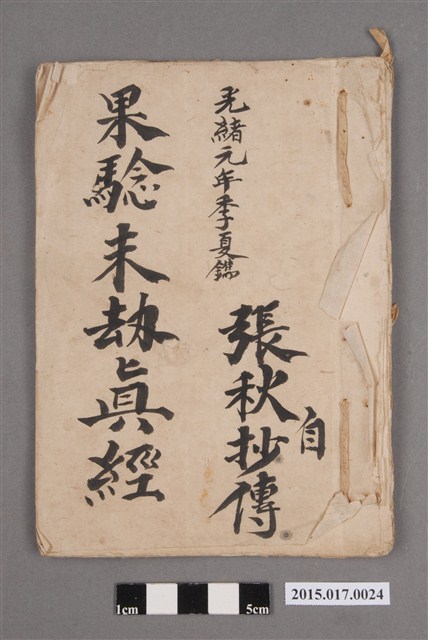 光緒元年季夏鐫
張秋抄傳
自
果騐末劫眞經
1cm
5cm
2015.017.0024